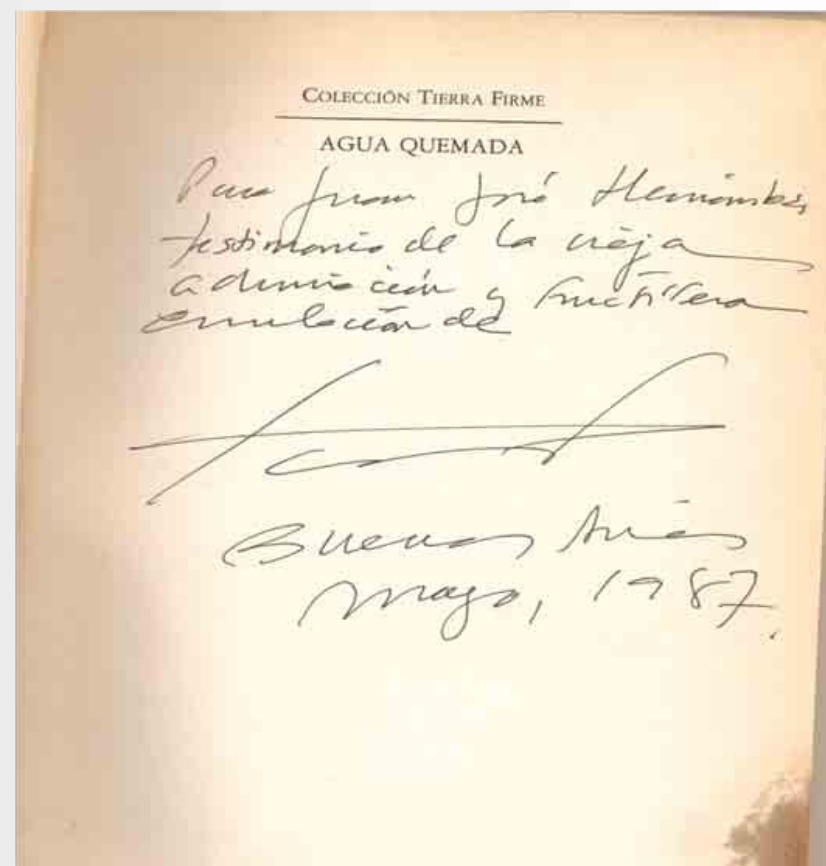 COLECCIÓN TIERRA FIRME
AGUA QUEMADA
Para Juan José Hernández,
testimonio de la vieja
admiración y fructífera
emulación de
Buenos Aires
mayo, 1987.